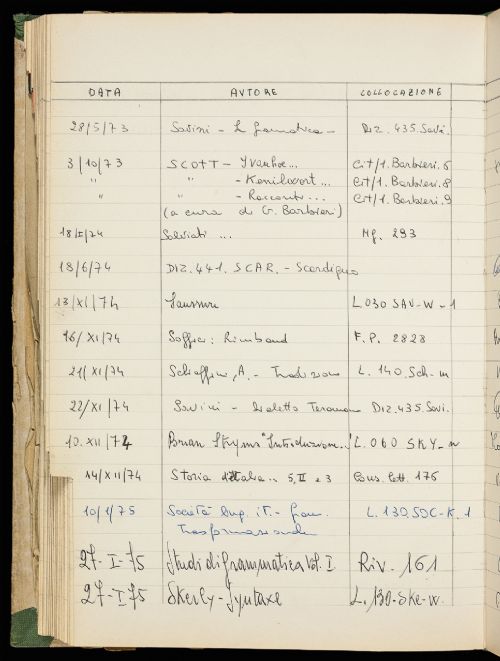 DATA AVTORE COLLOCAZIONE
28/5/73 Savini - La Grammatica - Diz. 435. Savi.
3/10/73 SCOTT - Ivanhoe... Cit/1. Barbieri. 6
" " - Kenilwort... Cit/1. Barbieri. 8
" " - Racconti... Cit/1. Barbieri. 9
(a cura di G. Barbieri)
18/I/74 Salviati ... Mg. 293
18/6/74 DIZ. 441. SCAR. - Scardigno
13/XI/74 Saussure L 030 SAV-W-1
16/XI/74 Soffici: Rimbaud F.P. 2828
21/XI/74 Schiaffini, A. - L. 140. Sch-m
22/XI/74 Savini - Dialetto Teramano Diz. 435. Savi.
10.XII/74 Brian Skyrms "Introduzione.." L. 060 SKY-n
14/XII/74 Storia d'Italia.. 5, II e 3 Cons. lett. 176
10/1/75 Società ling. it. - gram. L. 130. SOC-K. 1
trasformazionale
27-I-75 Studi di Grammatica Vol. I Riv. 161
27-I-75 Skerly - Syntaxe L. 130-Ske-w.